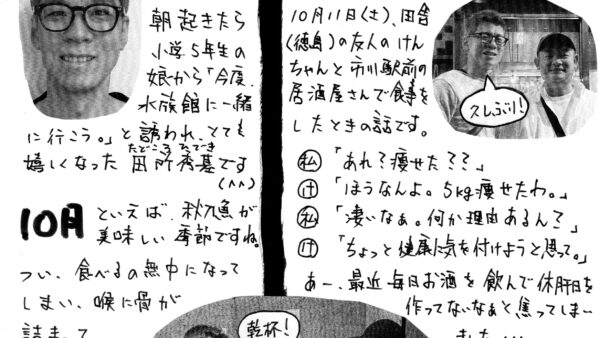 朝起きたら
小学5年生の
娘から「今度、
水族館に一緒
に行こう。」と誘われ、とても
たどころ ひでき
嬉しくなった 田所秀基です
(^^)
10月 といえば、秋刀魚が
美味しい季節ですね。
つい、食べるの無中になって
しまい、喉に骨が
詰まって
10月11日(土)、田舎
(徳島)の友人のけん
ちゃんと市川駅前の
居酒屋さんで食事を
したときの話です。
スしぶり!
私「あれ?痩せた??」
け「ほうなんよ。5kg痩せたわ。」
私「凄いなぁ。何か理由あるん?」
け「ちょっと健康に気を付けようと思って。」
あー、最近毎日お酒を飲んで休肝日を
作ってないなぁと焦ってしまい
ました...
乾杯!